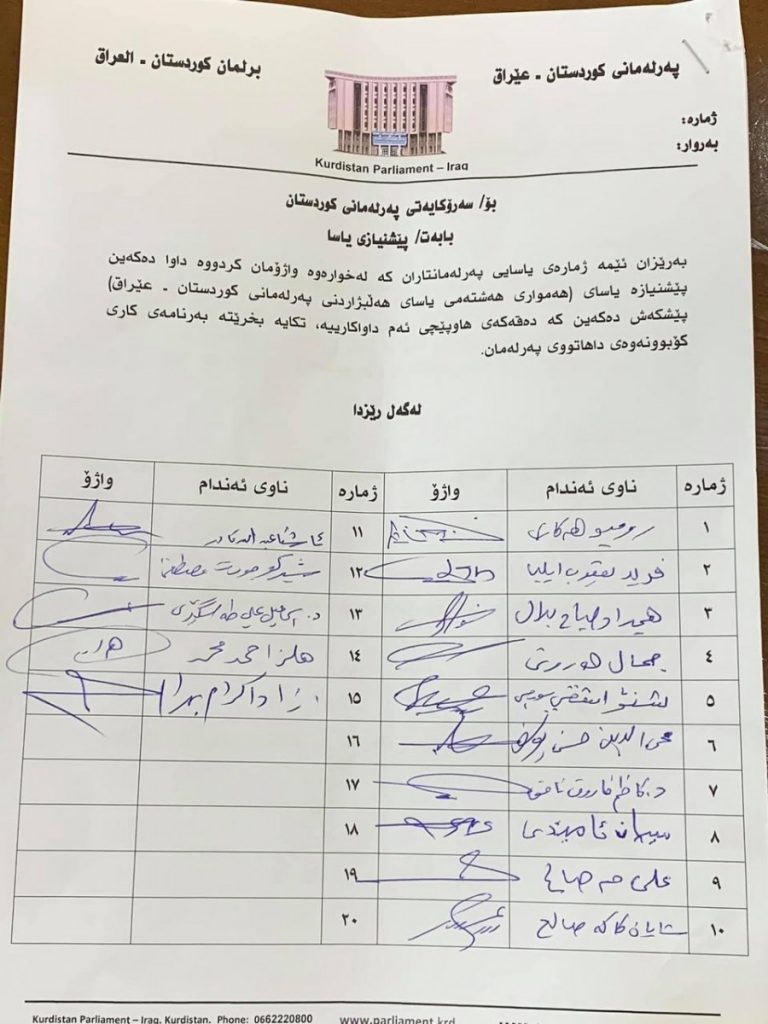 پەرلەمانی کوردستان - عێراق
برلمان كوردستان - العراق
Kurdistan Parliament – Iraq
ژمارە:
بەروار:
بۆ/ سەرۆکایەتی پەرلەمانی کوردستان
بابەت/ پێشنیازی یاسا
بەرێزان ئێمە ژمارەی یاسایی پەرلەمانتاران کە لەخوارەوە واژۆمان کردووە داوا دەکەین
پێشنیازە یاسای (هەمواری هەشتەمی یاسای هەڵبژاردنی پەرلەمانی کوردستان - عێراق)
پێشکەش دەکەین کە دەقەکەی هاوپێچی ئەم داواکارییە، تکایە بخرێتە بەرنامەی کاری
کۆبوونەوەی داهاتووی پەرلەمان.
لەگەل رێزدا
ژمارە ناوی ئەندام واژۆ ژمارە ناوی ئەندام واژۆ
١ رومیو هەکاری ١١
٢ فرید یعقوب ایلیا ١٢ مصطفى
٣ هیمداد صباح بلال ١٣ د. علي طه
٤ جمال ١٤ هلز احمد محمد
٥ ١٥ اكرام بهرام
٦ محي الدين حسن ١٦
٧ د. كاظم فاروق ١٧
٨ ١٨
٩ علی حمە صالح ١٩
١٠ شایان کاکە صالح ٢٠
Kurdistan Parliament – Iraq, Kurdistan. Phone: 0662220800 www.parliament.krd